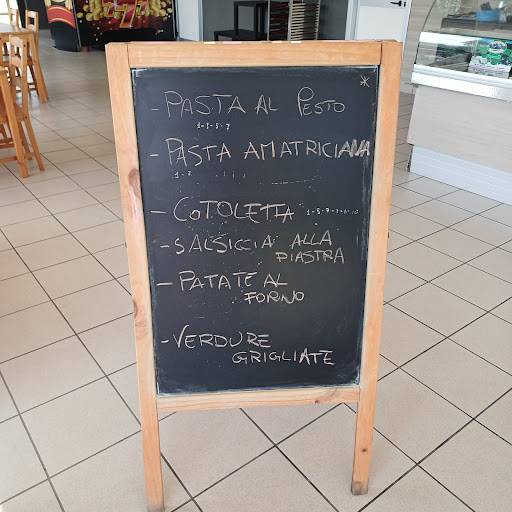 - PASTA AL PESTO
- PASTA AMATRICIANA
- COTOLETTA
- SALSICCIA ALLA
PIASTRA
- PATATE AL
FORNO
- VERDURE
GRIGLIATE